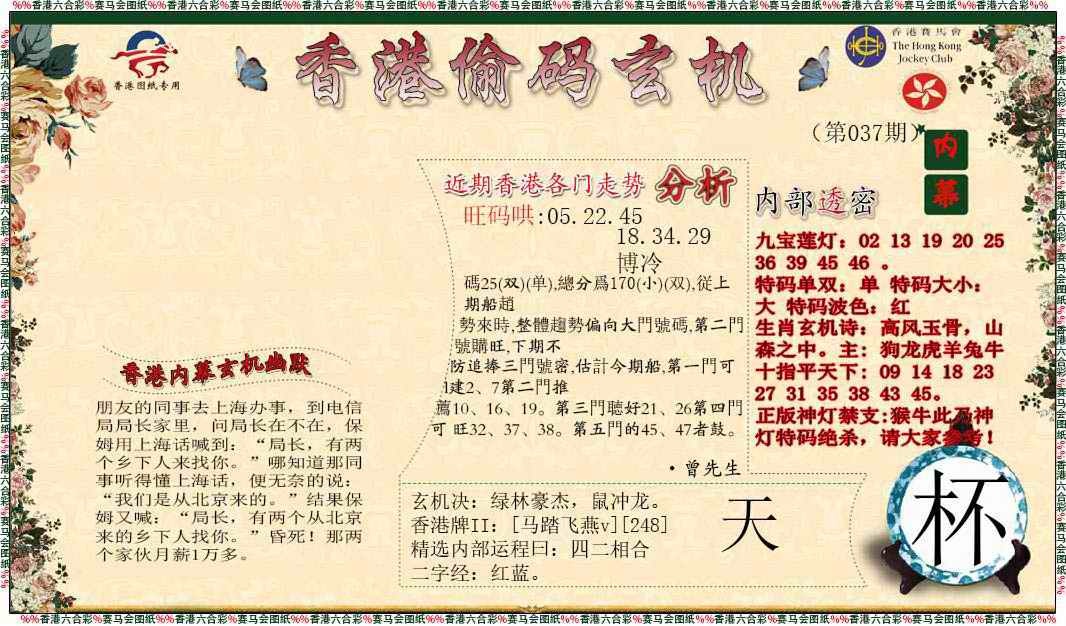 %%香港六合彩%赛马会图纸%%香港六合彩%赛马会图纸%%香港六合彩%赛马会图纸%%香港六合彩%赛马会图纸%%香港六合彩%赛马会图纸%%香港六合彩%赛马会图纸%%香港六合彩%%
香港图纸专用
香港偷码玄机
香港賽馬會
The Hong Kong
Jockey Club
(第037期)
内
幕
近期香港各门走势 分析
旺码哄:05.22.45
18.34.29
博冷
碼25(双)(单),總分爲170(小)(双),従上
期船趙
勢來時,整體趨勢偏向大門號碼,第二門
號購旺,下期不
防追捧三門號密,估計今期船,第一門可
建2、7第二門推
薦10、16、19。第三門聴好21、26第四門
可 旺32、37、38。第五門的45、47者鼓。
·曾先生
内部透密
九宝莲灯：02 13 19 20 25
36 39 45 46 。
特码单双：单 特码大小：
大 特码波色：红
生肖玄机诗：高风玉骨，山
森之中。主：狗龙虎羊兔牛
十指平天下：09 14 18 23
27 31 35 38 43 45。
正版神灯禁支:猴牛此乃神
灯特码绝杀，请大家参考！
香港内幕玄机幽默
朋友的同事去上海办事，到电信
局局长家里，问局长在不在，保
姆用上海话喊到：“局长，有两
个乡下人来找你。”哪知道那同
事听得懂上海话，便无奈的说：
“我们是从北京来的。”结果保
姆又喊：“局长，有两个从北京
来的乡下人找你。”昏死！那两
个家伙月薪1万多。
玄机决：绿林豪杰，鼠冲龙。
香港牌II：[马踏飞燕v][248]
精选内部运程曰：四二相合
二字经：红蓝。
天
杯
%%香港六合彩%赛马会图纸%%香港六合彩%赛马会图纸%%香港六合彩%赛马会图纸%%香港六合彩%赛马会图纸%%香港六合彩%赛马会图纸%%香港六合彩%赛马会图纸%%香港六合彩%%